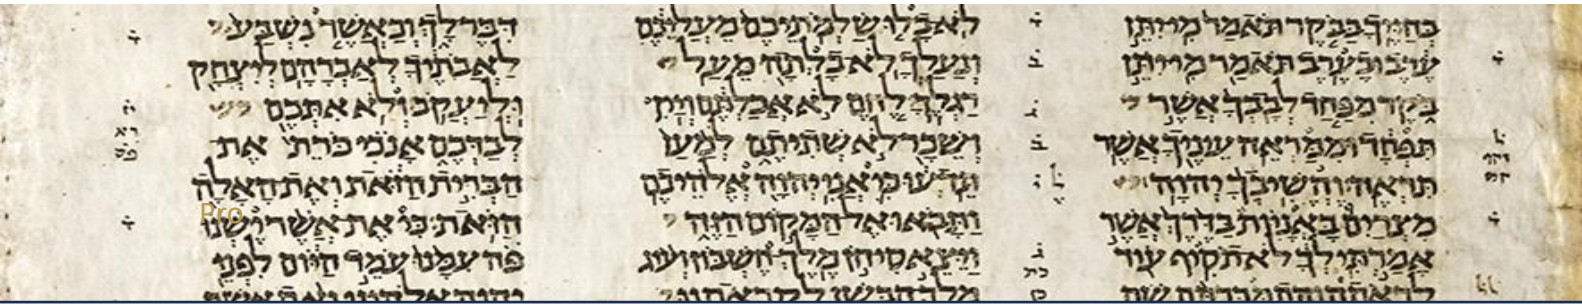 בחייך בבקר תאמר מי יתן
ערב ובערב תאמר מי יתן
בקר מפחד לבבך אשר
תפחד וממראה עיניך אשר
תראה והשיבך יהוה
מצרים באניות בדרך אשר
אמרתי לך לא תסיף עוד
לראתה והתמכרתם שם
לא בלו שלמתיכם מעליכם
ונעלך לא בלתה מעל
רגלך לחם לא אכלתם ויין
ושכר לא שתיתם למען
תדעו כי אני יהוה אלהיכם
ותבאו אל המקום הזה
ויצא סיחן מלך חשבון ועוג
מלך הבשן לקראתנו
דבר לך וכאשר נשבע
לאבתיך לאברהם ליצחק
וליעקב ולא אתכם
לבדכם אנכי כרת את
הברית הזאת ואת האלה
הזאת כי את אשר ישנו
פה עמנו עמד היום לפני
יהוה אלהינו ואת אשר
Pro